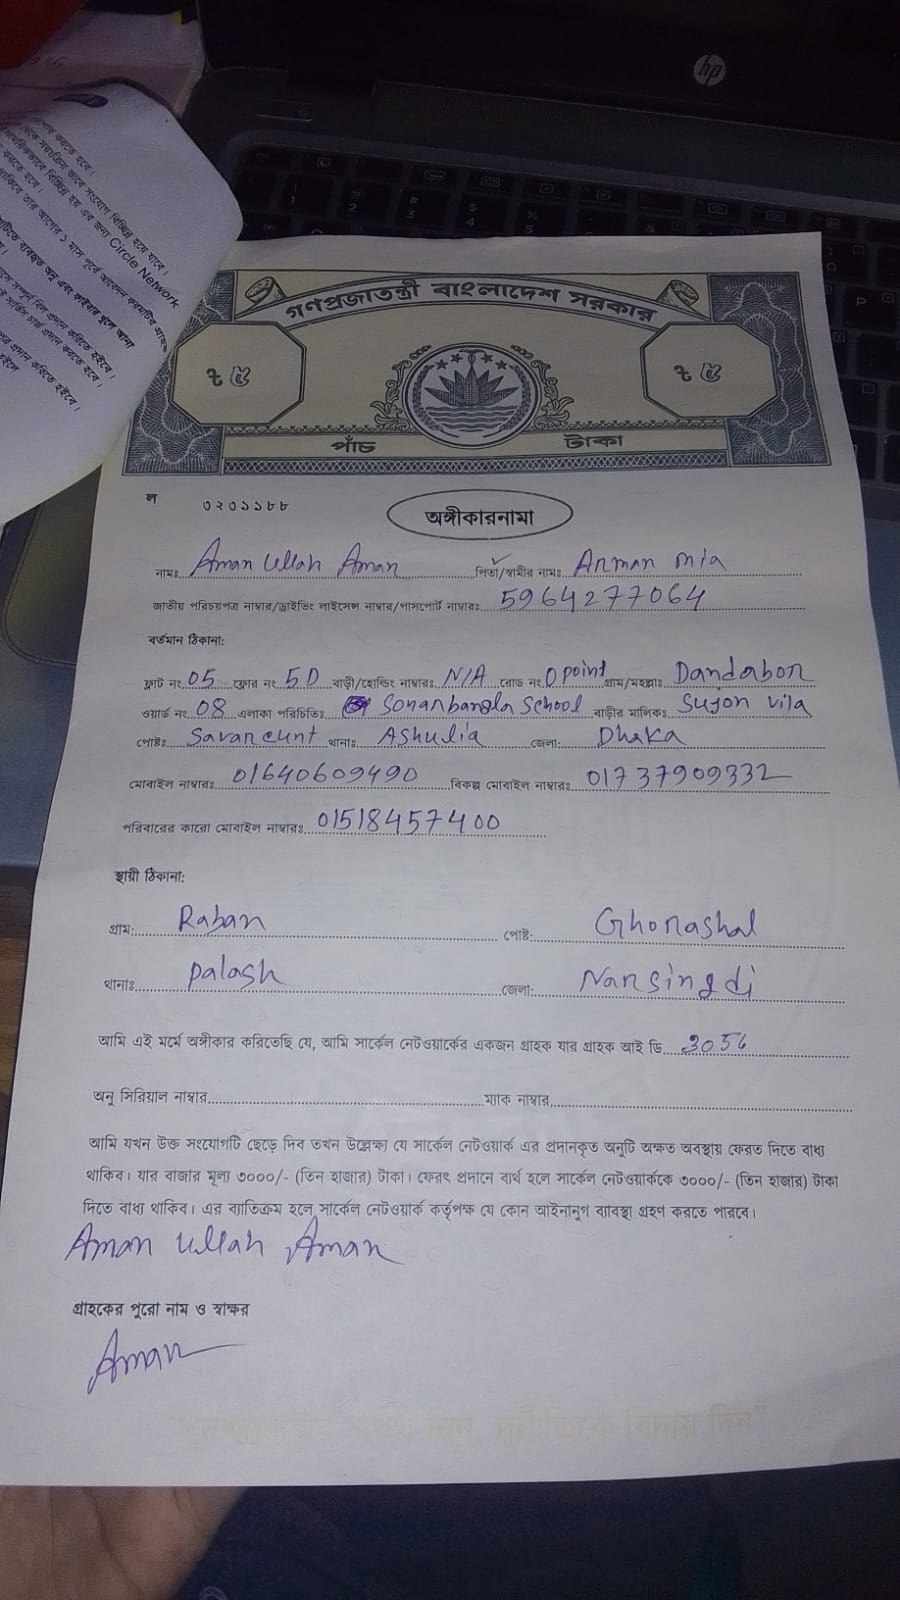 hp
গণপ্রজাতন্ত্রী বাংলাদেশ সরকার
৳ ৫ ৳ ৫
পাঁচ টাকা
ল ৩২৩১১৮৮
অঙ্গীকারনামা
নামঃ Aman Ullah Aman পিতা/স্বামীর নামঃ Arman mia
জাতীয় পরিচয়পত্র নাম্বার/ড্রাইভিং লাইসেন্স নাম্বার/পাসপোর্ট নাম্বারঃ 5964277064
বর্তমান ঠিকানা:
ফ্লাট নং 05 ফ্লোর নং 5D বাড়ী/হোল্ডিং নাম্বারঃ N/A রোড নং 0 point গ্রাম/মহল্লাঃ Dandabon
ওয়ার্ড নং 08 এলাকা পরিচিতিঃ Sonarbangla School বাড়ীর মালিকঃ Sujon vila
পোষ্টঃ Savar cunt থানাঃ Ashulia জেলা: Dhaka
মোবাইল নাম্বারঃ 01640609490 বিকল্প মোবাইল নাম্বারঃ 01737909332
পরিবারের কারো মোবাইল নাম্বারঃ 01518457400
স্থায়ী ঠিকানা:
গ্রাম: Raban পোষ্ট: Ghorashal
থানাঃ palash জেলা: Narsingdi
আমি এই মর্মে অঙ্গীকার করিতেছি যে, আমি সার্কেল নেটওয়ার্কের একজন গ্রাহক যার গ্রাহক আই ডি 3056
অনু সিরিয়াল নাম্বার ম্যাক নাম্বার
আমি যখন উক্ত সংযোগটি ছেড়ে দিব তখন উল্লেক্ষ্য যে সার্কেল নেটওয়ার্ক এর প্রদানকৃত অনুটি অক্ষত অবস্থায় ফেরত দিতে বাধ্য
থাকিব। যার বাজার মূল্য ৩০০০/- (তিন হাজার) টাকা। ফেরৎ প্রদানে ব্যর্থ হলে সার্কেল নেটওয়ার্ককে ৩০০০/- (তিন হাজার) টাকা
দিতে বাধ্য থাকিব। এর ব্যাতিক্রম হলে সার্কেল নেটওয়ার্ক কর্তৃপক্ষ যে কোন আইনানুগ ব্যাবস্থা গ্রহণ করতে পারবে।
Aman Ullah Aman
গ্রাহকের পুরো নাম ও স্বাক্ষর
Aman
নিন, দুর্নীতিকে বিদায় দিন"